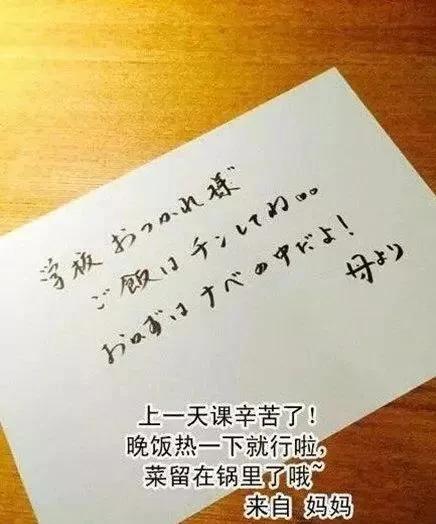 学校 おつかれ様
ご飯は チンしてね。。
おかずは ナベの中だよ!
母より
上一天课辛苦了!
晚饭热一下就行啦,
菜留在锅里了哦~
来自 妈妈